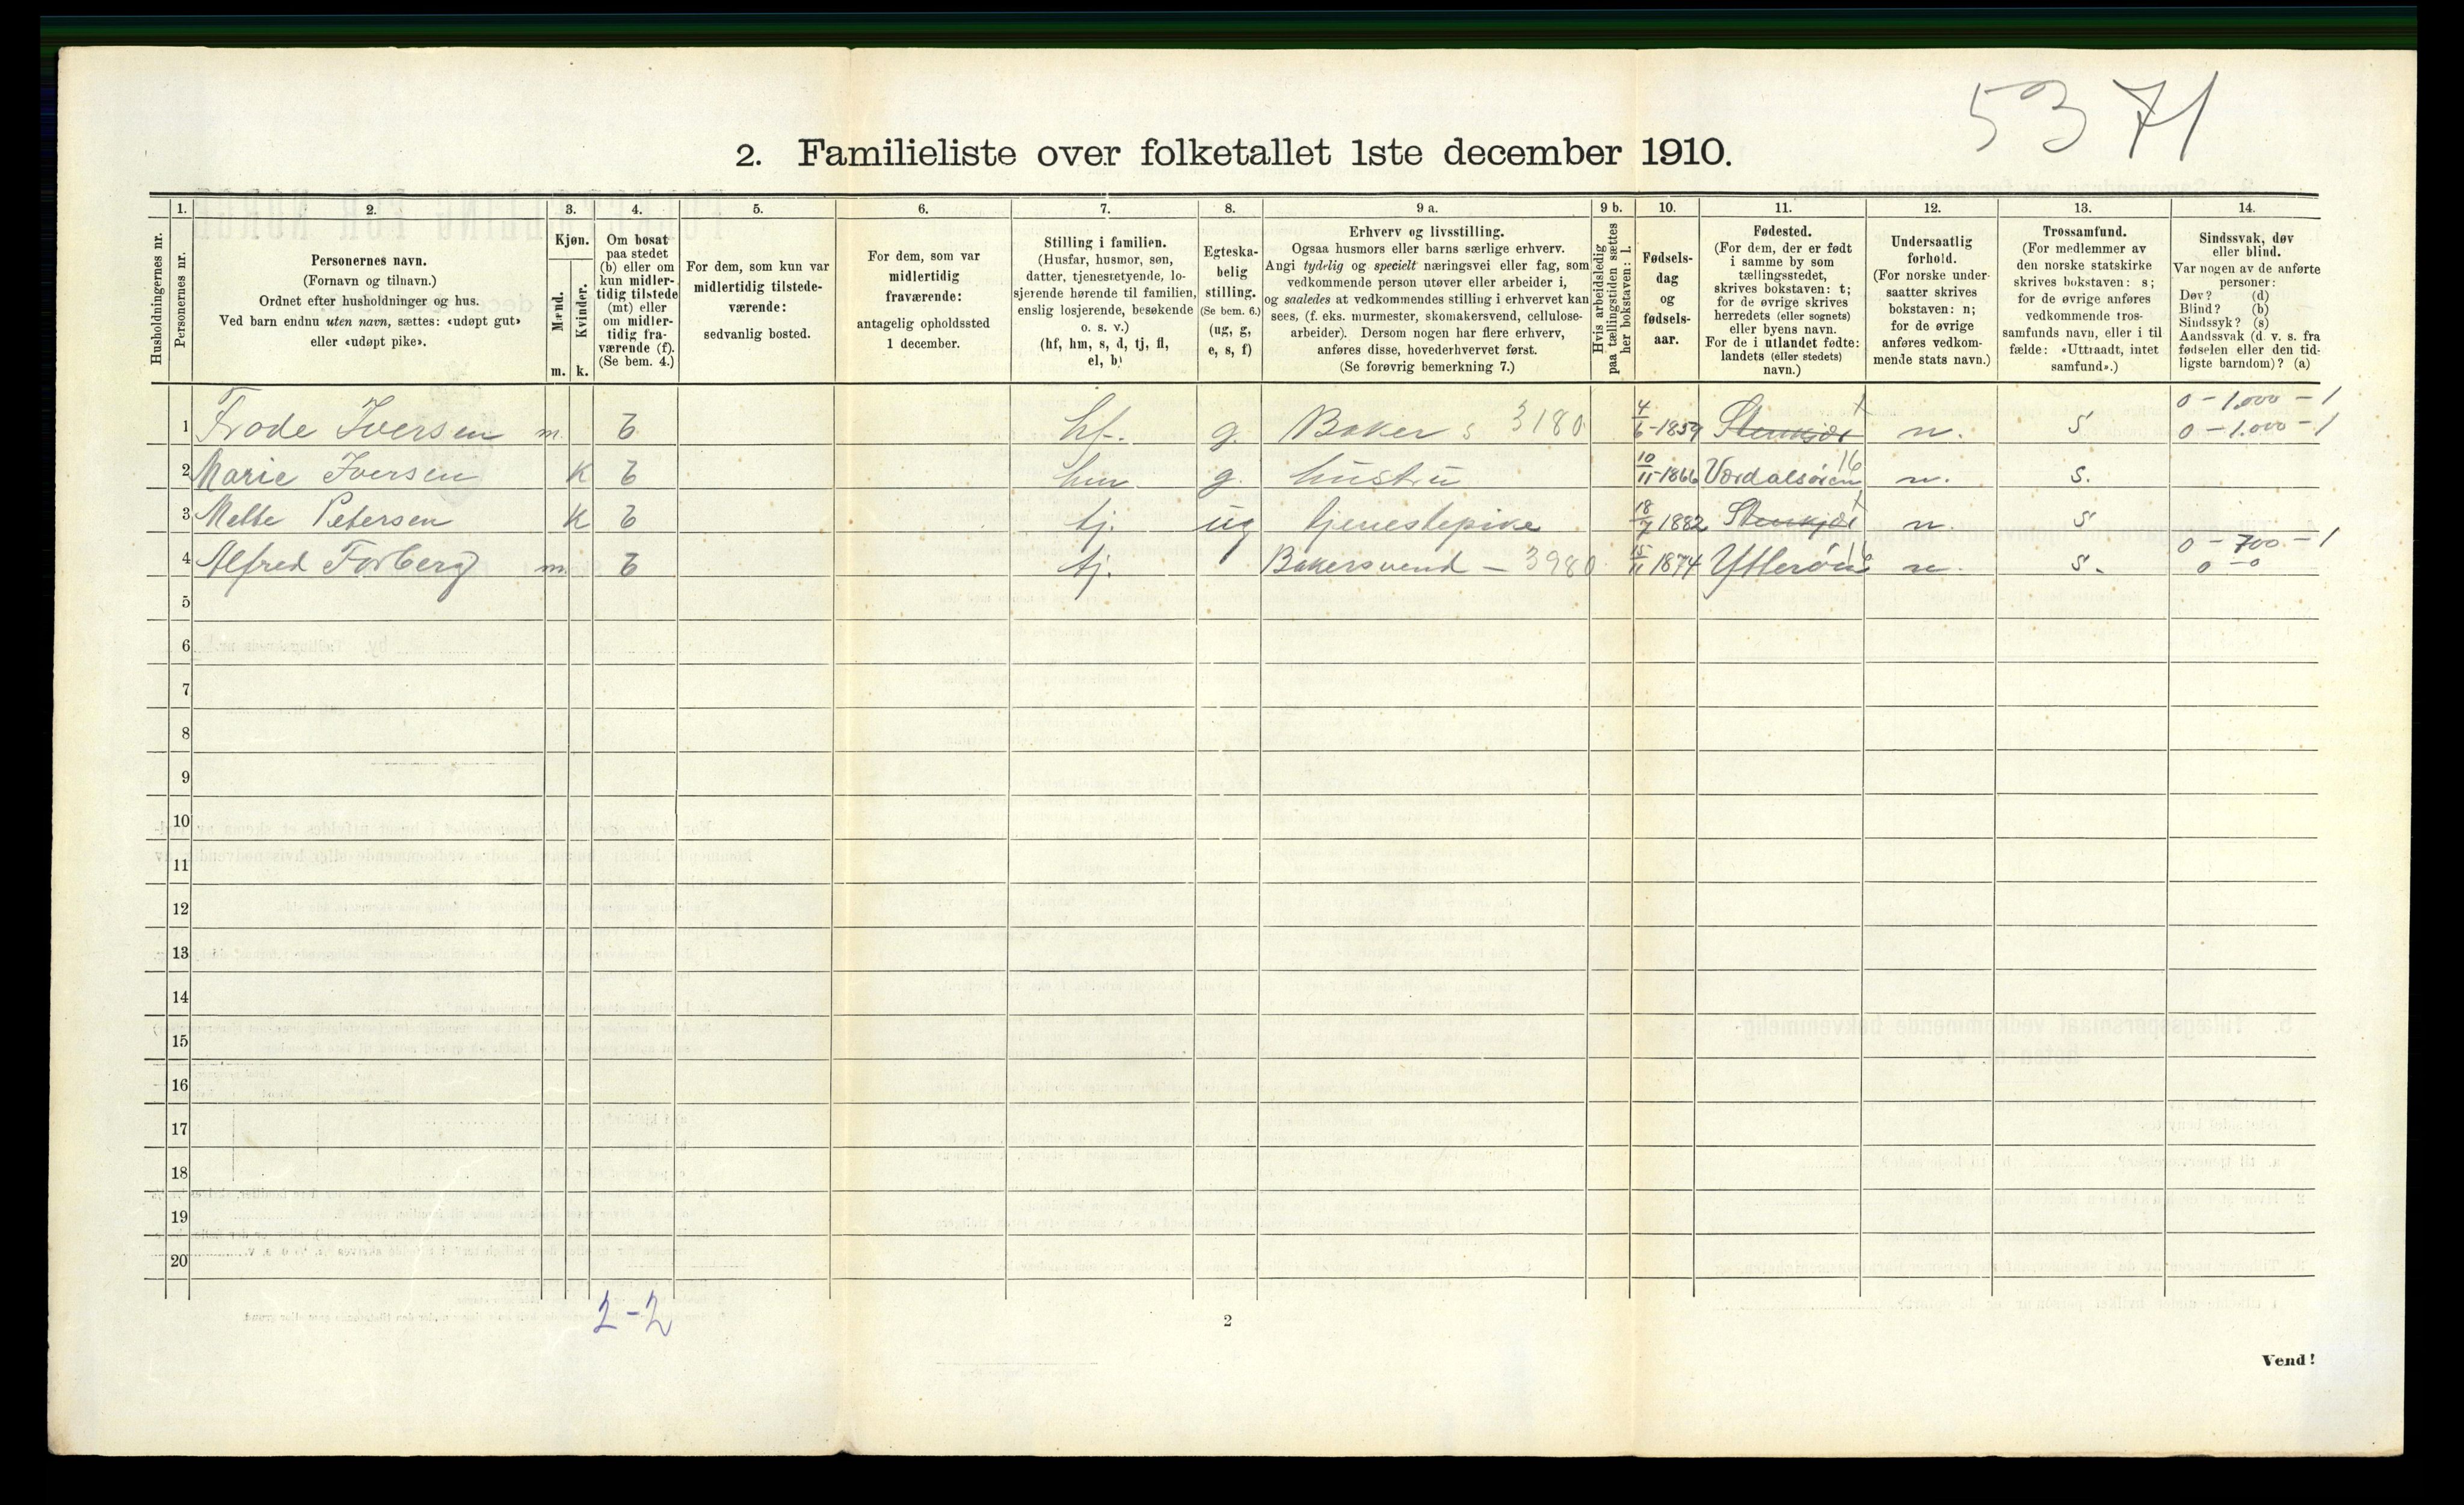 5371
2. Familieliste over folketallet 1ste december 1910.
1. 2. 3. 4. 5. 6. 7. 8. 9 a. 9 b. 10. 11. 12. 13. 14.
Husholdningernes nr.
Personernes nr.
Personernes navn.
(Fornavn og tilnavn.)
Ordnet efter husholdninger og hus.
Ved barn endnu uten navn, sættes: «udøpt gut»
eller «udøpt pike».
Kjøn.
Mænd.
Kvinder.
m. k.
Om bosat
paa stedet
(b) eller om
kun midler-
tidig tilstede
(mt) eller
om midler-
tidig fra-
værende (f).
(Se bem. 4.)
For dem, som kun var
midlertidig tilstede-
værende:
sedvanlig bosted.
For dem, som var
midlertidig
fraværende:
antagelig opholdssted
1 december.
Stilling i familien.
(Husfar, husmor, søn,
datter, tjenestetyende, lo-
sjerende hørende til familien,
enslig losjerende, besøkende
o. s. v.)
(hf, hm, s, d, tj, fl,
el, b)
Egteska-
belig
stilling.
(Se bem. 6.)
(ug, g,
e, s, f)
Erhverv og livsstilling.
Ogsaa husmors eller barns særlige erhverv.
Angi tydelig og specielt næringsvei eller fag, som
vedkommende person utøver eller arbeider i,
og saaledes at vedkommendes stilling i erhvervet kan
sees, (f. eks. murmester, skomakersvend, cellulose-
arbeider). Dersom nogen har flere erhverv,
anføres disse, hovederhvervet først.
(Se forøvrig bemerkning 7.)
Hvis arbeidsledig
paa tællingstiden sættes
her bokstaven: l.
Fødsels-
dag
og
fødsels-
aar.
Fødested.
(For dem, der er født
i samme by som
tællingsstedet,
skrives bokstaven: t;
for de øvrige skrives
herredets (eller sognets)
eller byens navn.
For de i utlandet fødte:
landets (eller stedets)
navn.)
Undersaatlig
forhold.
(For norske under-
saatter skrives
bokstaven: n;
for de øvrige
anføres vedkom-
mende stats navn.)
Trossamfund.
(For medlemmer av
den norske statskirke
skrives bokstaven: s;
for de øvrige anføres
vedkommende tros-
samfunds navn, eller i til
fælde: «Uttraadt, intet
samfund».)
Sindssvak, døv
eller blind.
Var nogen av de anførte
personer:
Døv? (d)
Blind? (b)
Sindssyk? (s)
Aandssvak (d. v. s. fra
fødselen eller den tid-
ligste barndom)? (a)
0 - 1.000 - 1
1 Frode Iversen m. b hf. g. Baker s 3180 4/6-1859 Stenkjær t n. s 0 - 1.000 - 1
2 Marie Iversen K b hm g. hustru 10/11-1866 Værdalsøren 16 n. s.
3 Mette Petersen K b tj. ug tjenestepike 18/7 1882 Stenkjær t n. s
0 - 700 - 1
4 Alfred Forberg m b tj. Bakersvend - 3980 15/11 1874 Ytterøen 16 n. s. 0 - 0
5
6
7
8
9
10
11
12
13
14
15
16
17
18
19
20
2-2
2
Vend!